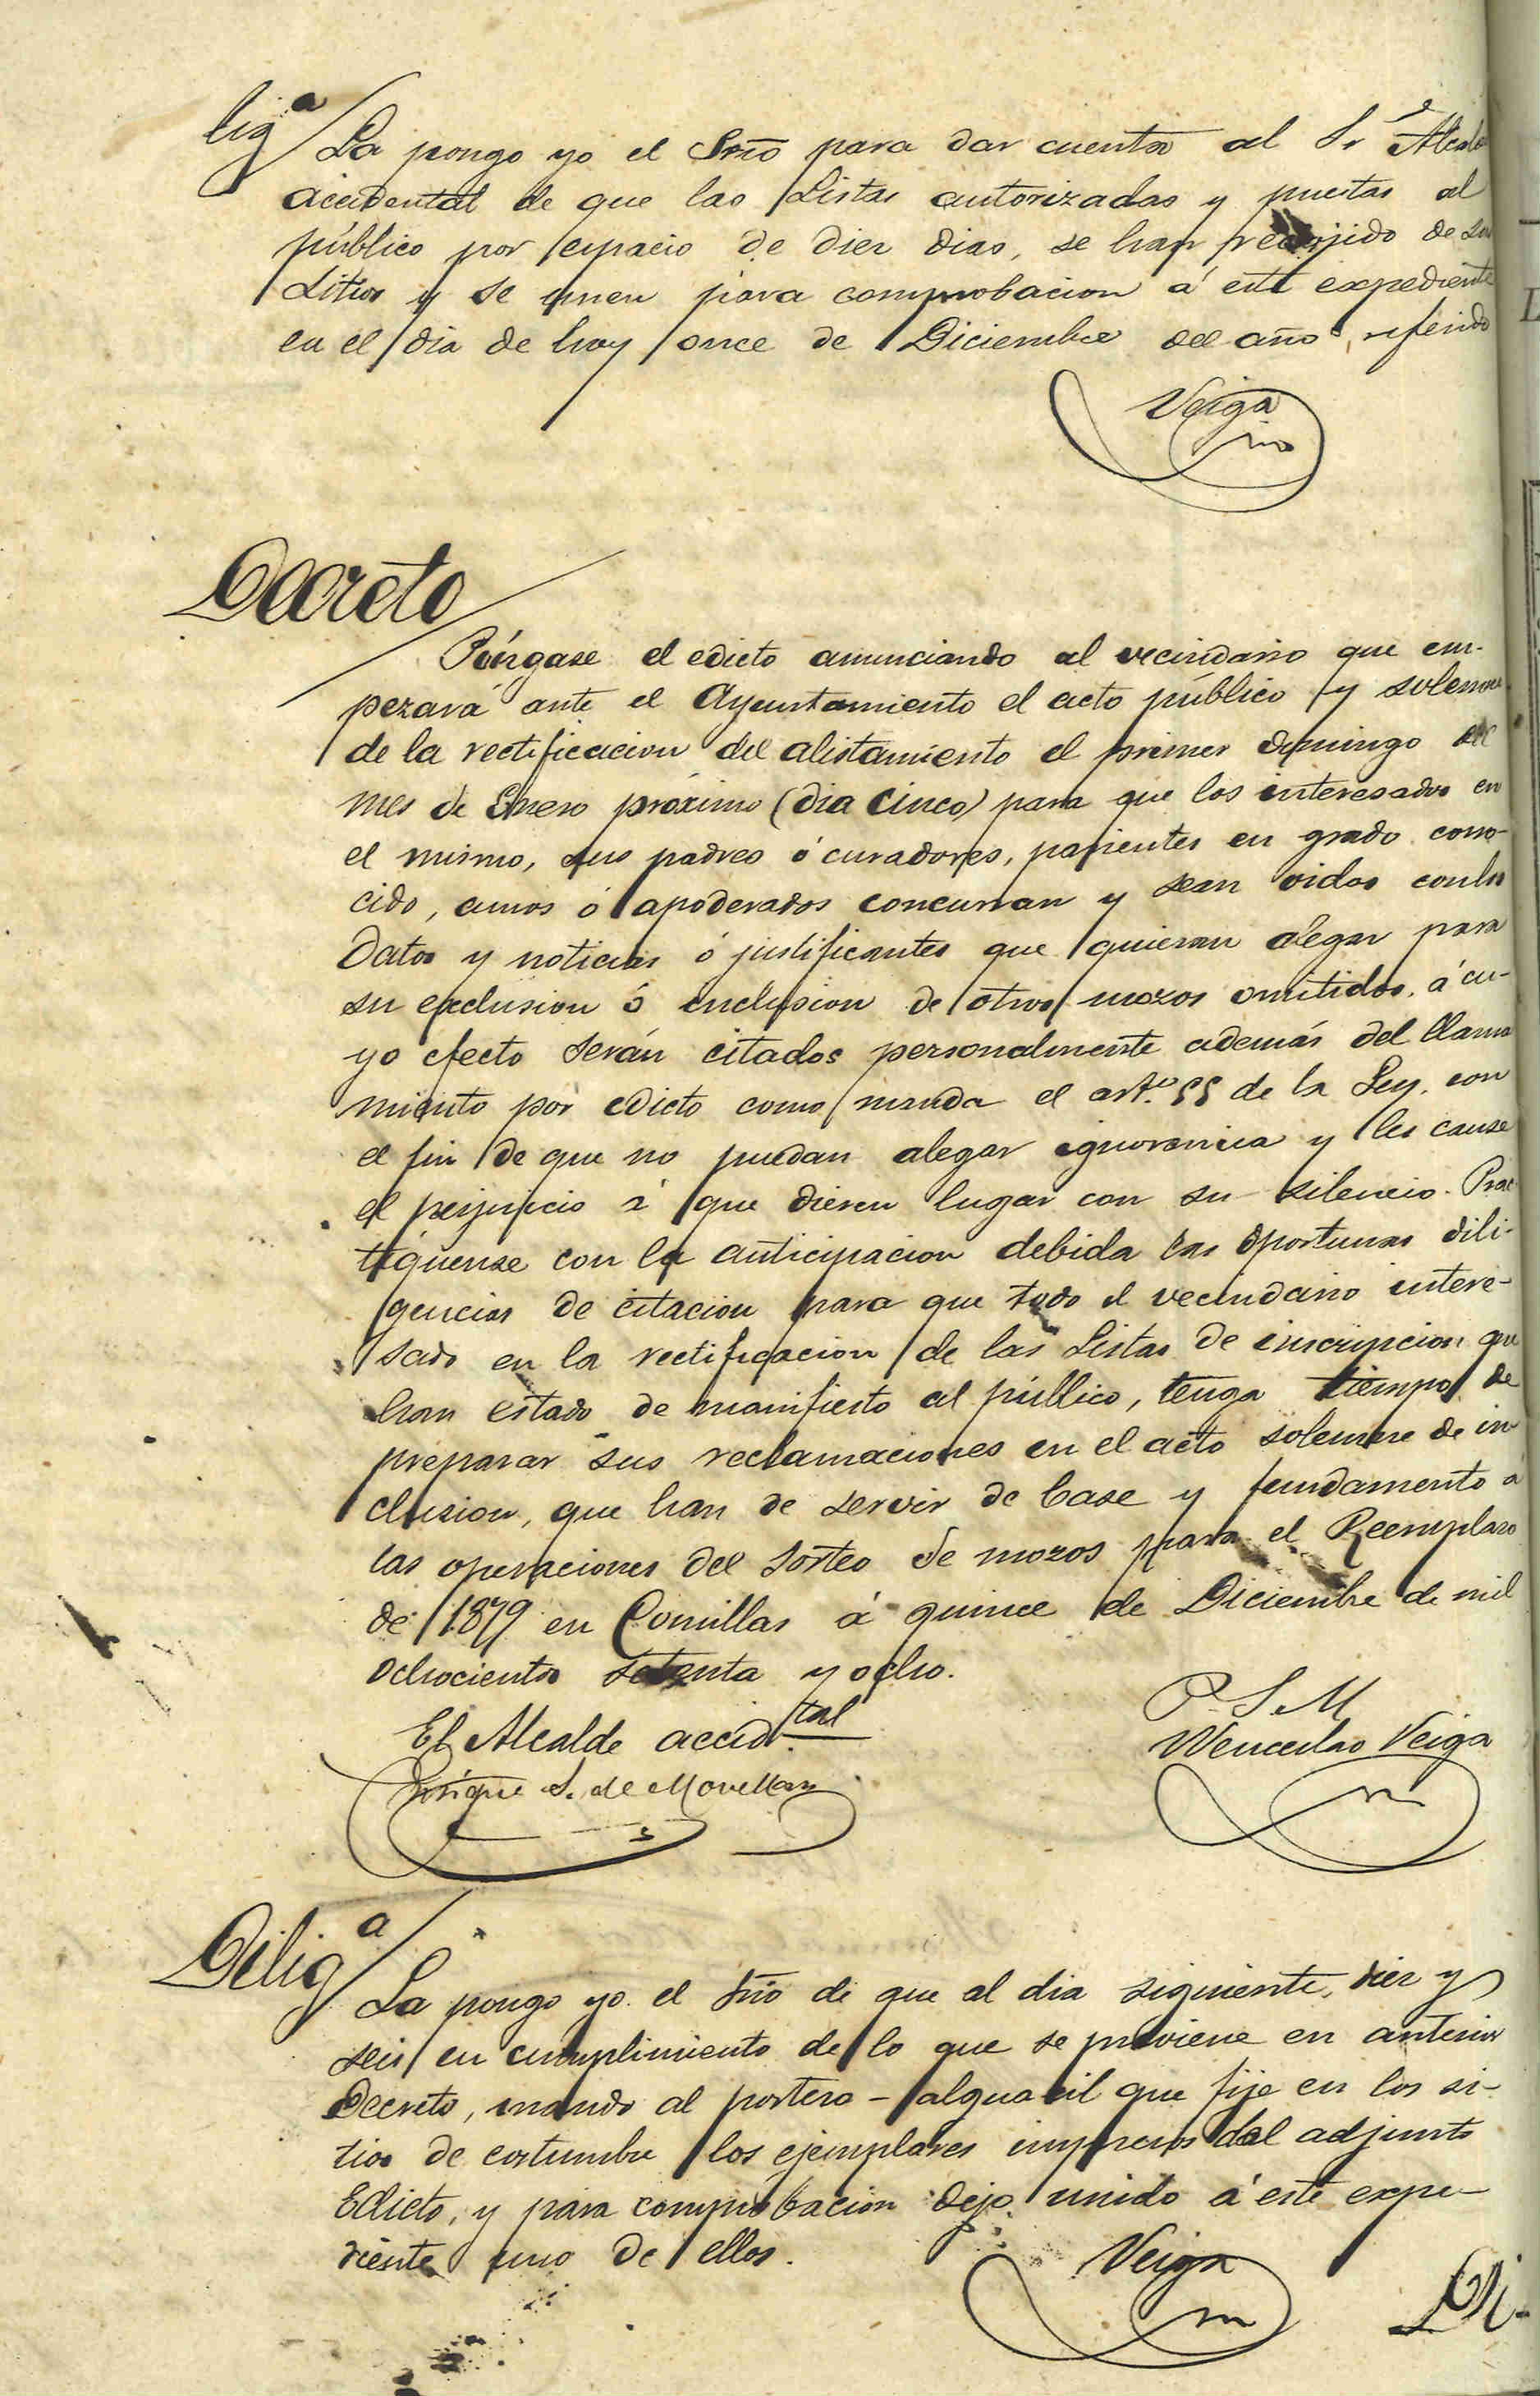 lig.ª
La pongo yo el Srio para dar cuenta al Sr Alcalde
accidental de que las Listas autorizadas y puestas al
público por espacio de diez dias, se han recojido de los
sitios y se unen para comprobacion á este expediente
en el dia de hoy once de Diciembre del año referido
Veiga
Decreto
Póngase el edicto anunciando al vecindario que em-
pezará ante el Ayuntamiento el acto público y solemne
de la rectificacion del alistamiento el primer domingo del
mes de Enero próximo (dia cinco) para que los interesados en
el mismo, sus padres ó curadores, parientes en grado cono-
cido, amos ó apoderados concurran y sean oidos con los
datos y noticias ó justificantes que quieran alegar para
su exclusion ó inclusion de otros mozos omitidos, á cu-
yo efecto serán citados personalmente además del llama
miento por edicto como manda el art.º 55 de la Ley, con
el fin de que no puedan alegar ignorancia y les cause
el perjuicio á que dieren lugar con su silencio. Prac
tíquense con la anticipacion debida las oportunas dili-
gencias de citacion para que todo el vecindario intere-
sado en la rectificacion de las Listas de inscripcion que
han estado de manifiesto al público, tenga tiempo de
preparar sus reclamaciones en el acto solemne de in
clusion, que han de servir de base y fundamento á
las operaciones del sorteo de mozos para el Reemplazo
de 1879 en Comillas á quince de Diciembre de mil
ochocientos setenta y ocho.
El Alcalde accid.tal
Enrique S. de Movellan
P. S. M
Wenceslao Veiga
Dilig.ª
La pongo yo el Srio de que al dia siguiente, diez y
seis en cumplimiento de lo que se previene en anterior
Decreto, mando al portero - alguacil que fije en los si-
tios de costumbre los ejemplares impresos del adjunto
Edicto, y para comprobacion dejo unido á este expe-
diente uno de ellos.
Veiga
Di-